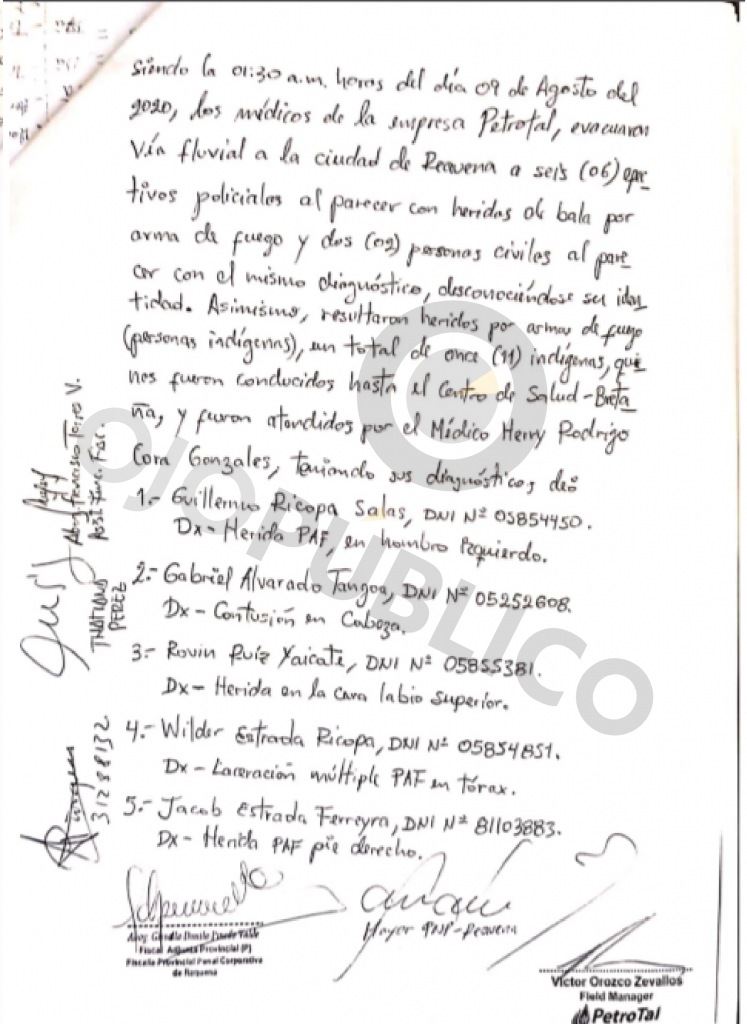 siendo la 01:30 a.m. horas del día 09 de Agosto del
2020, los médicos de la empresa Petrotal, evacuaron
vía fluvial a la ciudad de Requena a seis (06) efec-
tivos policiales al parecer con heridas de bala por
arma de fuego y dos (02) personas civiles al pare-
cer con el mismo diagnóstico, desconociéndose su iden-
tidad. Asimismo, resultaron heridos por armas de fuego
(personas indígenas), un total de once (11) indígenas, quie-
nes fueron conducidos hasta el Centro de Salud-Breta-
ña, y fueron atendidos por el Médico Henry Rodrigo
Cora Gonzales, teniendo sus diagnósticos de:
1.- Guillermo Ricopa Salas, DNI Nº 05854450.
Dx- Herida PAF, en hombro Izquierdo.
2.- Gabriel Alvarado Tangoa, DNI Nº 05252608.
Dx- Contusión en Cabeza.
3.- Rovin Ruíz Yaicate, DNI Nº 05855381.
Dx- Herida en la cara labio superior.
4.- Wilder Estrada Ricopa, DNI Nº 05854851.
Dx- Laceración múltiple PAF en tórax.
5.- Jacob Estrada Ferreyra, DNI Nº 81103883.
Dx- Herida PAF pie derecho.
Abog. Francisco Torres V.
Asist. Func. Fisc.
PEREZ
31288132
Fiscal Adjunta Provincial (P)
Fiscalía Provincial Penal Corporativa
de Requena
Mayor PNP-Requena
Víctor Orozco Zevallos
Field Manager
PetroTal
OJOPUBLICO